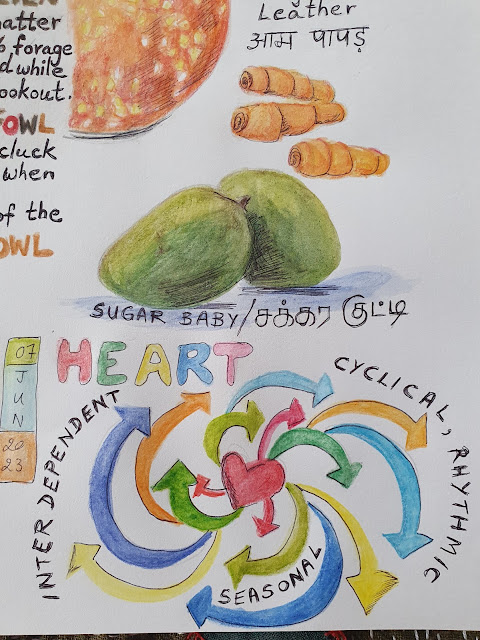 matter
forage
while
ookout.
FOWL
cluck
when
of the
OWL
Leather
आम पापड़
SUGAR BABY/சக்கர குட்டி
07
JUN
20
23
HEART
INTER DEPENDENT
CYCLICAL, RHYTHMIC
SEASONAL